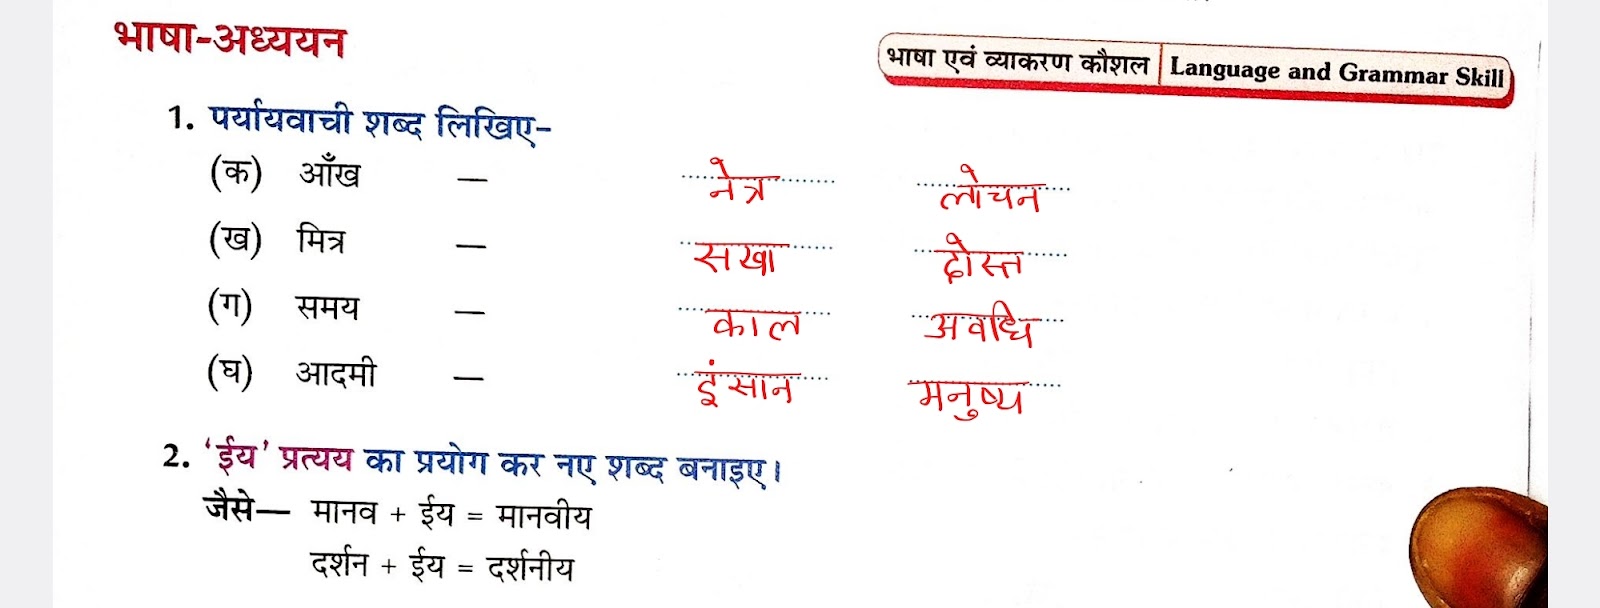 भाषा-अध्ययन
भाषा एवं व्याकरण कौशल | Language and Grammar Skill
1. पर्यायवाची शब्द लिखिए-
(क) आँख — नेत्र लोचन
(ख) मित्र — सखा दोस्त
(ग) समय — काल अवधि
(घ) आदमी — इंसान मनुष्य
2. 'ईय' प्रत्यय का प्रयोग कर नए शब्द बनाइए।
जैसे— मानव + ईय = मानवीय
दर्शन + ईय = दर्शनीय